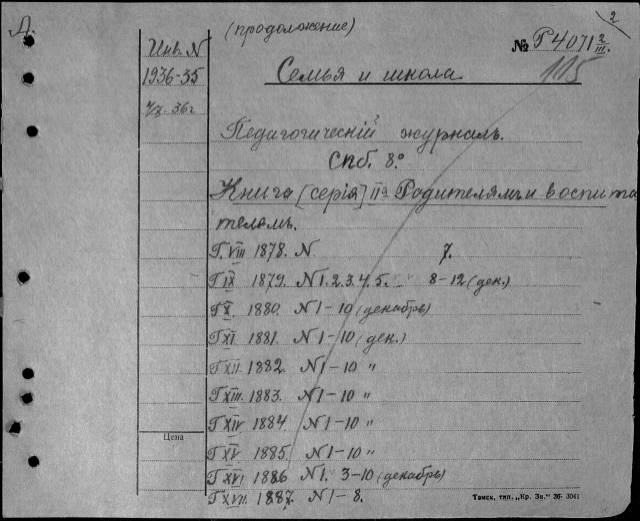 Д.
(продолжение)
2
Инв. N
1936-35
№ Г4071 2/III.
115
Семья и школа
Педагогическій журналъ.
Спб. 8°
Книга [серія] IIа Родителямъ и воспита
телямъ.
Г. VIII 1878. N 7.
Г IX 1879. N 1. 2. 3. 4. 5. 8-12 (дек.)
Г X. 1880. N 1-10 (декабрь)
Г XI 1881. N 1-10 (дек.)
Г XII 1882. N 1-10 "
Г XIII. 1883. N 1-10 "
Г XIV 1884. N 1-10 "
Г XV 1885. N 1-10 "
Г XVI 1886 N 1. 3-10 (декабрь)
Г XVII. 1887. N 1-8.
Цена
Томск, тип. „Кр. Зн." 36- 3041